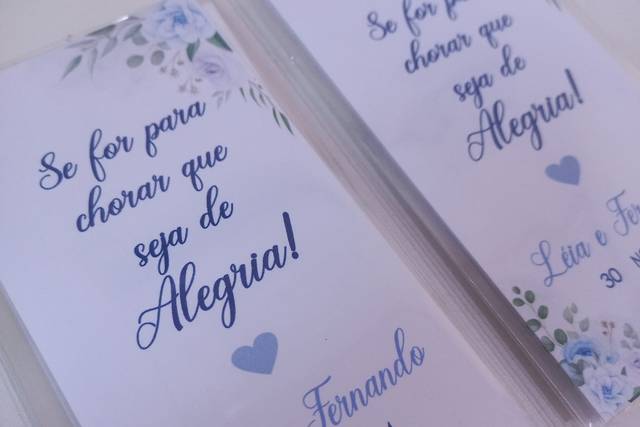 Se for para
chorar que
seja de
Alegria!
Fernando
Se for
chorar que
seja de
Alegria!
Léia e
30